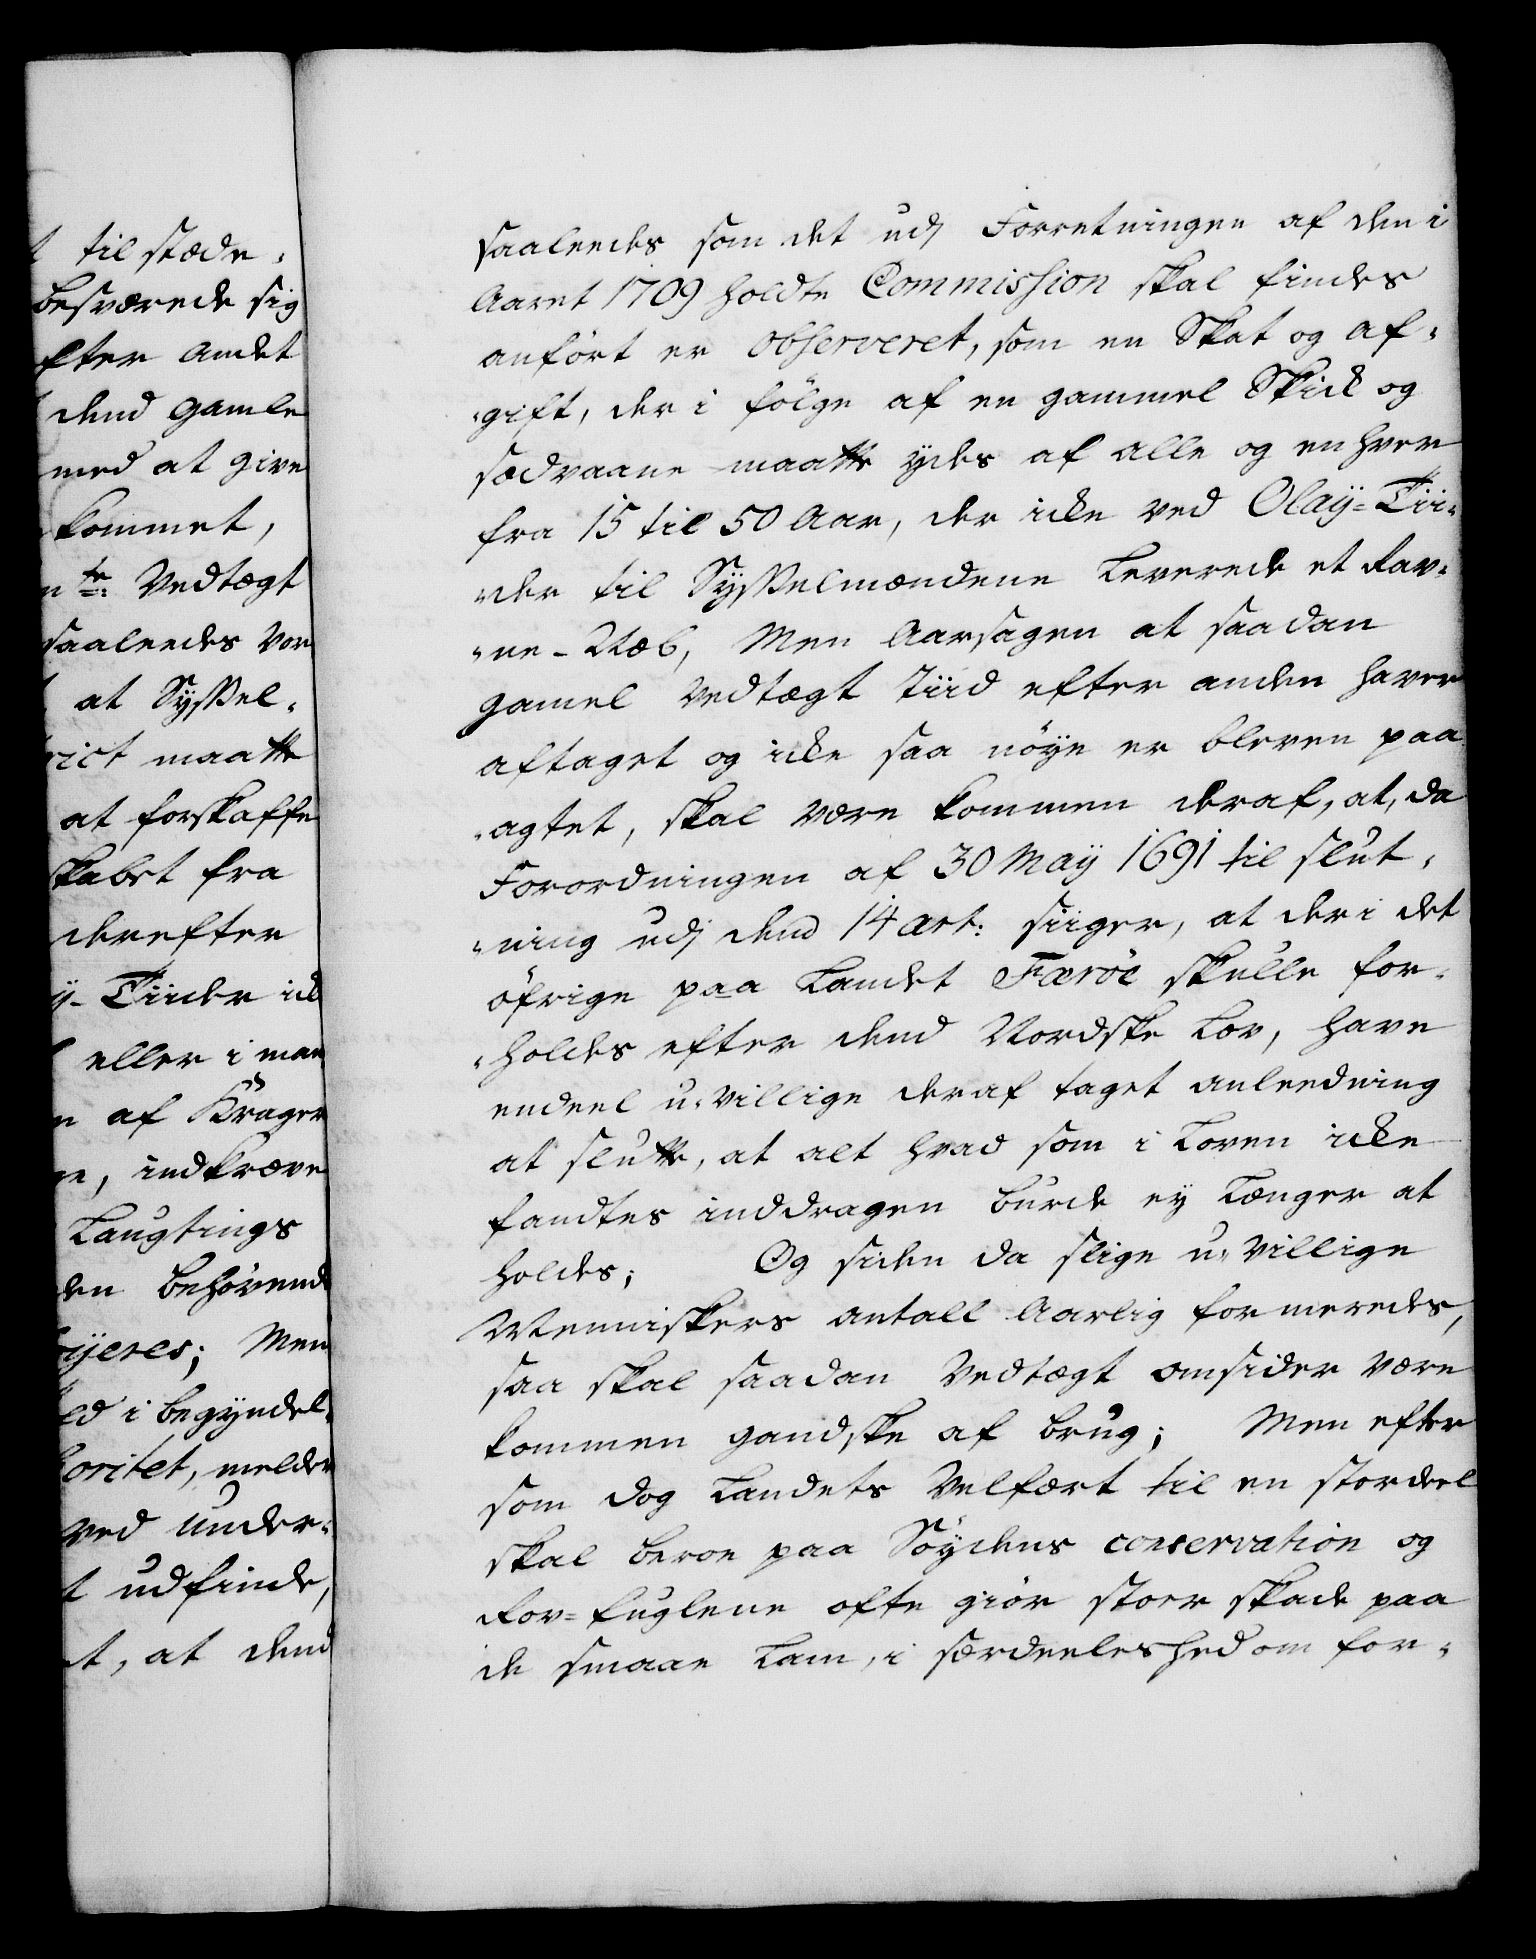 t til stede,
besværede sig
fter Andet
dend gamle
med at give
kommet,
n te: Vedtægt
saaleedes vor
at Syssel-
rict maatte
at forskaffe
skabet fra
derefter
ÿ- Tiider ick
eller i man
n af Krager
ge, indkræve
Laugtings
den behövend
ijeres; Men
ed i begyndel-
oritet, melder
ved under-
t udfinde,
t, at dend
saaleedes som det udj Forretningen af den i
Aaret 1709 holdte Commission skal findes
anfört er observeret, som en Skat og af-
-gift, der i fölge af en gammel Skick og
sædvaane maatte ydes af alle og enhver
fra 15 til 50 Aar, der icke ved Olaÿ-Tii-
-der til Sÿsselmændene Leverede et Rav-
-ne-Næb, Men Aarsagen at saadan
gamel Vedtægt Tiid efter anden haver
aftaget og icke saa nöÿe er bleven paa
-agtet, skal være kommen deraf, at, da
Forordningen af 30 Maÿ 1691 til slut-
-ning udj dend 14 art: siiger, at der i det
öfrige paa Landet Færöe skulle for-
-holdes efter dend Nordske Lov, have
endeel u-villige deraf taget anleedning
at slutte, at alt hvad som i Loven icke
fandtes inddragen burde ey Længer at
holdes; Og siden da slige u-villige
Menniskers antall Aarlig formeredes,
saa skal saadan Vedtægt omsider være
kommen gandske af brug; Men efter
som dog Landets Velfært til en stordeel
skal beroe paa Söydens conservation og
Rov-fuglene ofte giör stoer skade paa
de smaae Lam, i særdeeleshed om for-